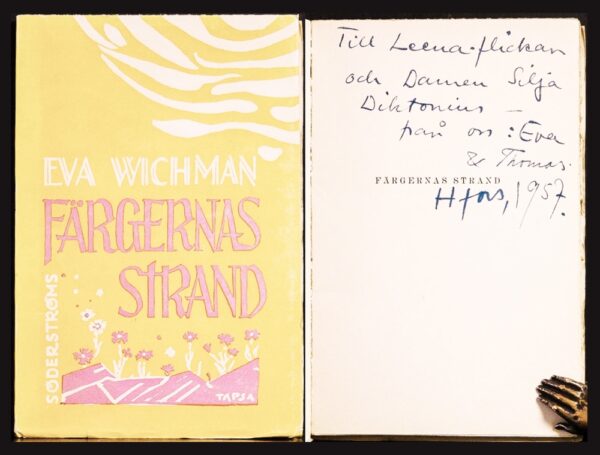 EVA WICHMAN
FÄRGERNAS
STRAND
SÖDERSTRÖMS
TAPSA
Till Leena-flickan
och Damen Silja
Diktonius –
från oss: Eva
& Thomas.
FÄRGERNAS STRAND
Hfors, 1957.